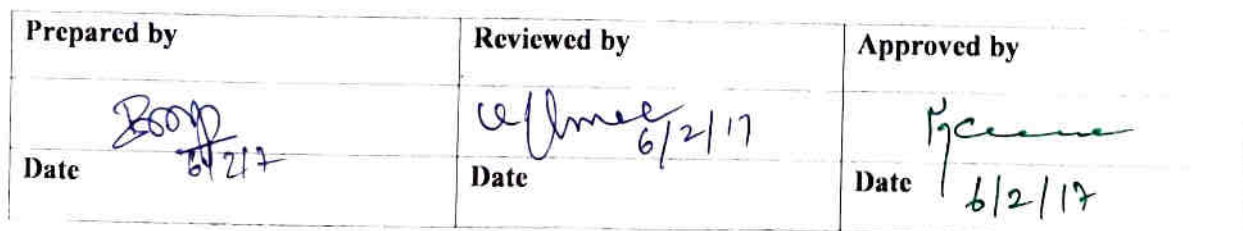 Prepared by Reviewed by Approved by
6/2/17 6/2/17
Date Date Date 6/2/17